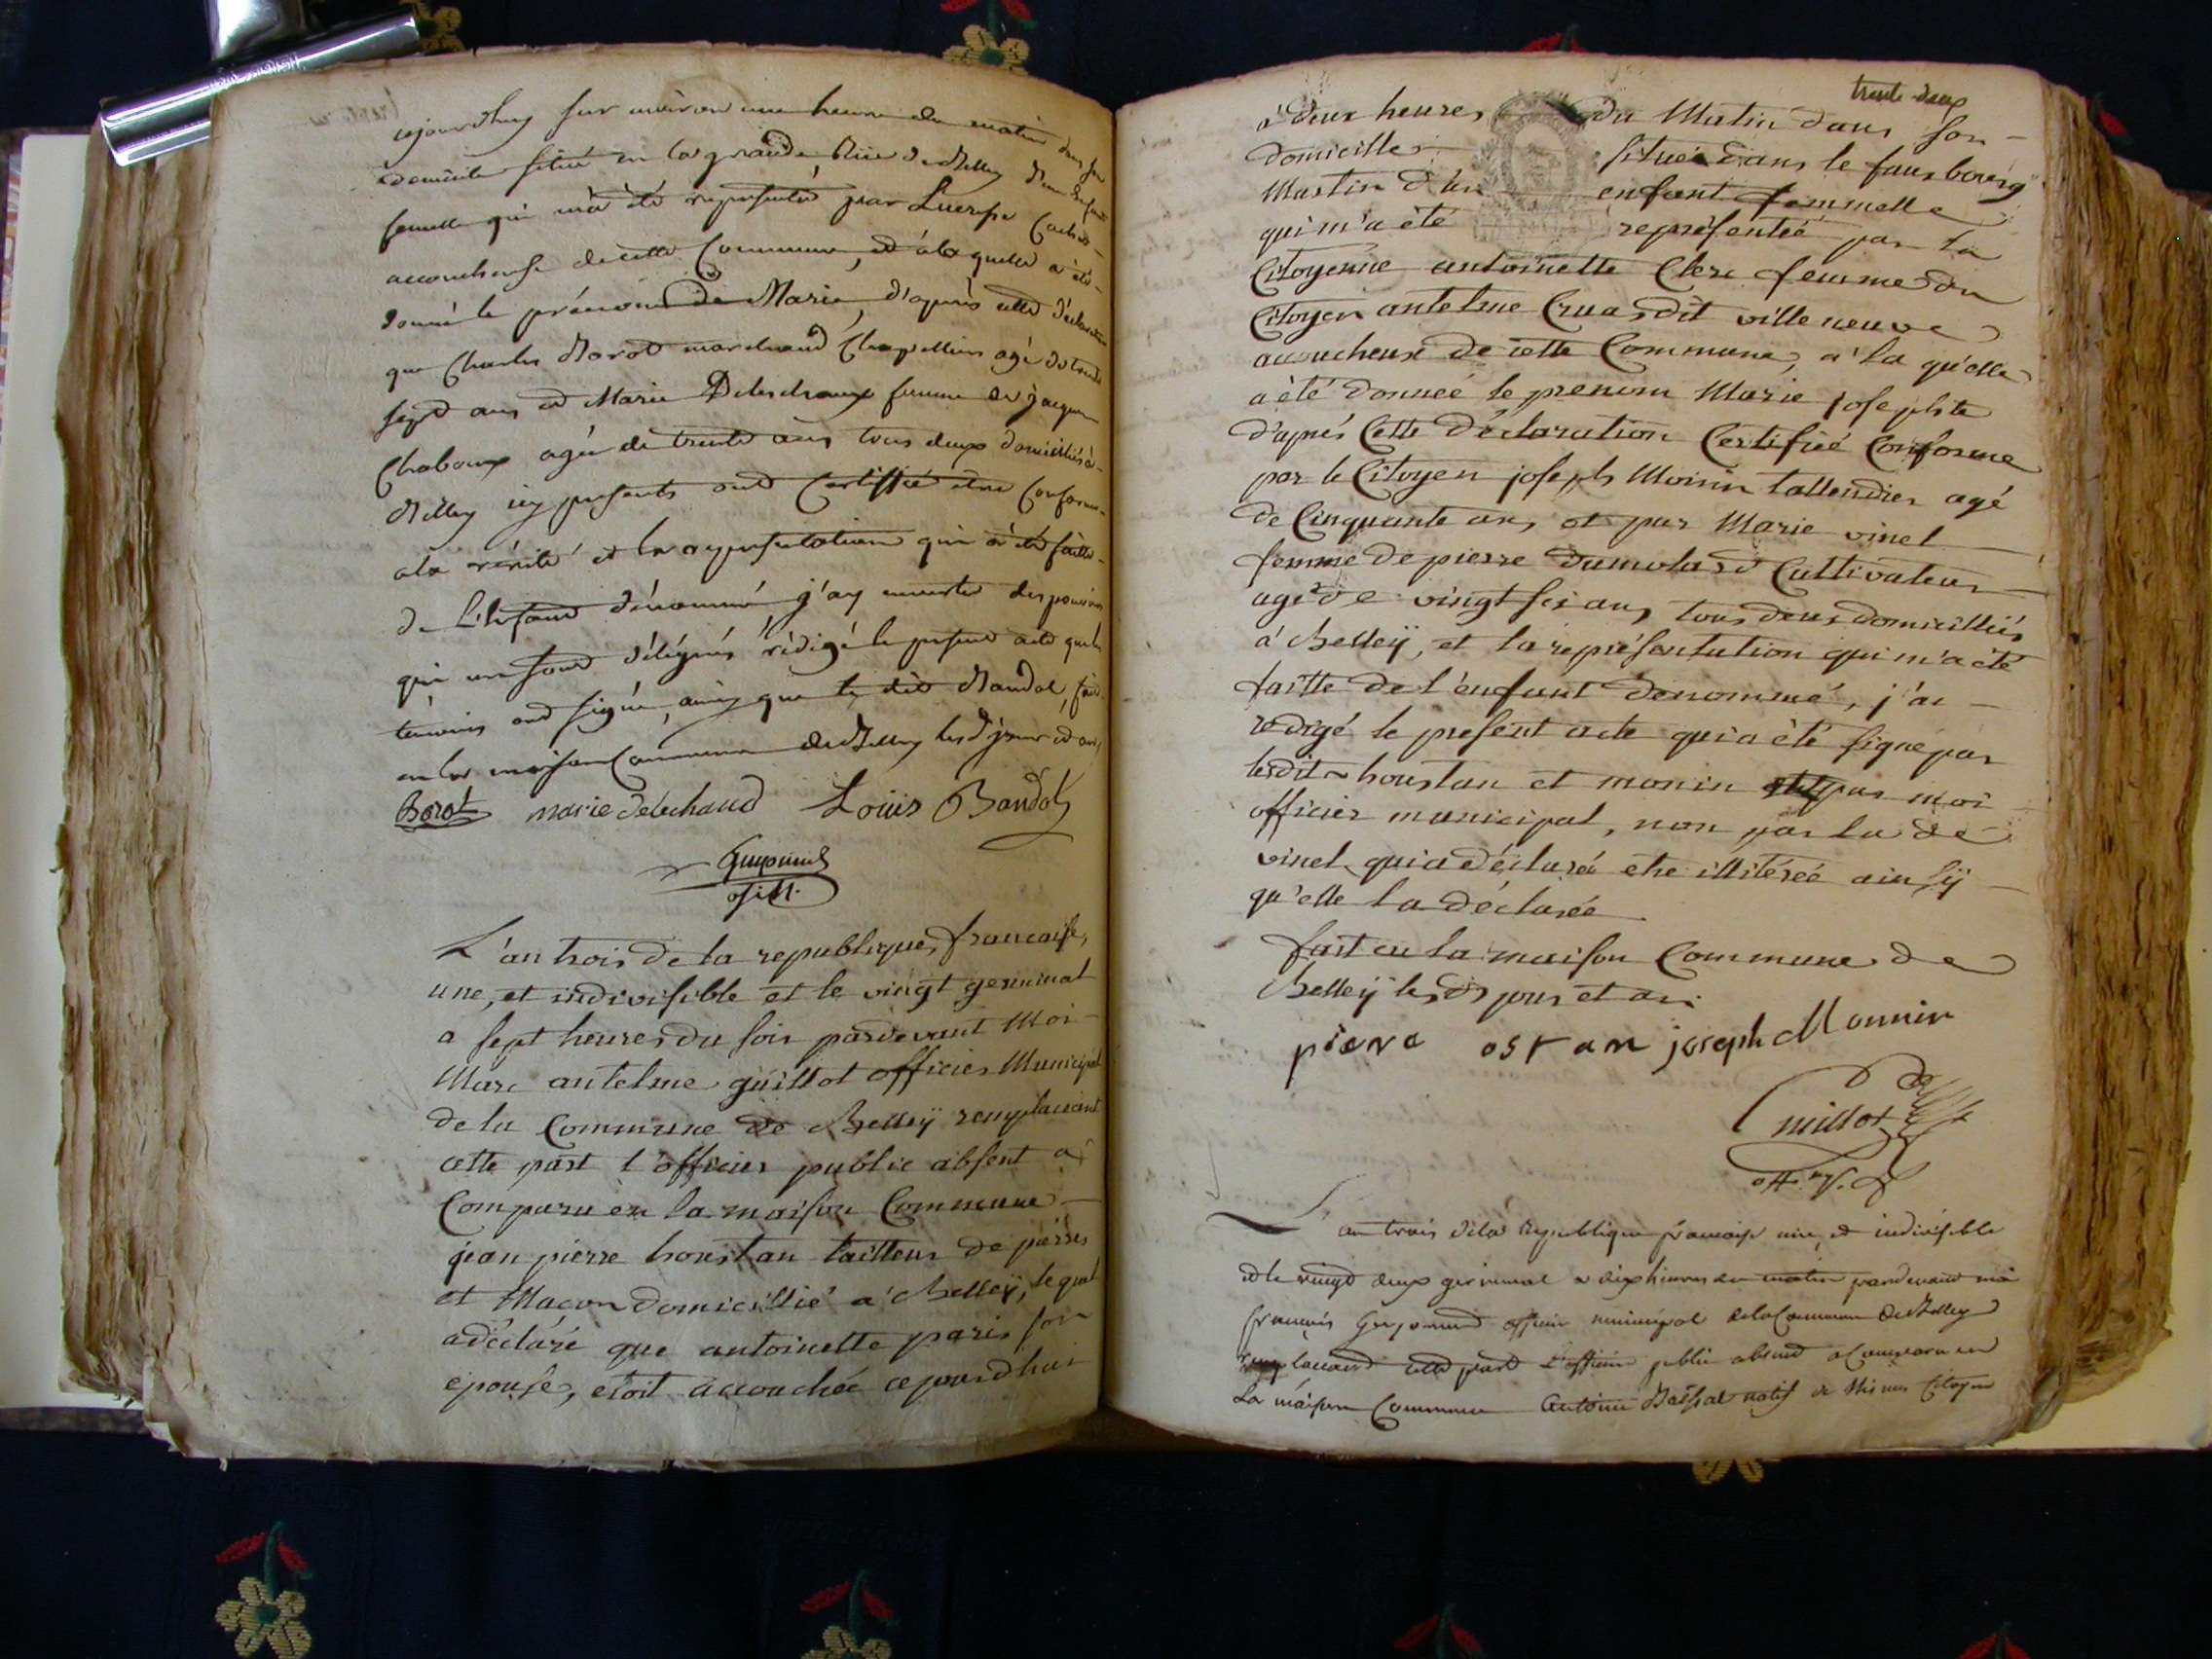 cejourdhuy sur environ une heure du matin dans son
domicile situé en la grande Rüe de Belley d'un Enfant
femelle qui m'a été représenté par
accoucheuse de cette Commune, et à laquelle a été
donné le prénom de Marie, d'après cette déclaration
que Charles Borot marchand Chapellier agé de trente
sept ans et Marie Delechaux femme de jacques
Chaboux agée de trente ans tous deux domiciliés à
Belley icy presents ont Certiffié etre Conforme
a la vérité et la representation qui a été faitte
de L'Enfant dénommé j'ay en vertu des pouvoirs
qui me sont délégués rédigé le present acte que les
temoins ont signé, ainsy que le dit Baudot, fait
en la maison Commune de Belley les d. jour et an,
Borot marie delechaud Loüis Baudot
Guyonnet
L'an trois de la republique, francaise,
une, et indivisible et le vingt germinal
a sept heures du soir pardevant Moi
Marc antelme guillot officier Municipal
de la Commune de Belleÿ remplacant
cette part l'officier public absent a
Comparu en la maison Commune
jean pierre houstan tailleur de pierres
et Macon domicillié a Belleÿ, lequel
a déclaré que antoinette paris son
epouse, etoit accouchée cejourdhui
trente deux
à deux heures du Matin dans son
domicille situé dans le fauxbourg
Martin d'un enfant femmelle
qui m'a été représentée par la
Citoyenne antoinette Clerc femme du
Citoyen antelme Cruas dit villeneuve
accucheuse de cette Commune, a la qu'elle
a été donnée le prenom Marie josephte
d'après Cette Déclaration Certifié Conforme
par le Citoyen joseph Moinin tallendier agé
de Cinquante ans, et par Marie vinet
femme de pierre dumolard Cultivateur
agé de vingt six ans, tous deux domicilliés
à Belleÿ, et la représentation qui m'a été
faitte de l'enfant denommé, j'ai
redigé le present acte qui a été signé par
lesdit houstan et monin et par moi
officier municipal, non par la de
vinet qui a déclaré etre illitérée ainsÿ
qu'elle la déclarée
fait en la maison Commune de
Belleÿ les d. jour et an.
piere ostan joseph Monnin
Guillot
off. m.
L'an trois de la Republique francaise une, et indivisible
et le vingt deux germinal a dix heures du matin pardevant moi
francois Guyonnet officier municipal de la Commune de Belley
remplacant cette part L'officier public absent a Comparu en
La maison Commune Antoine natif de Citoyen